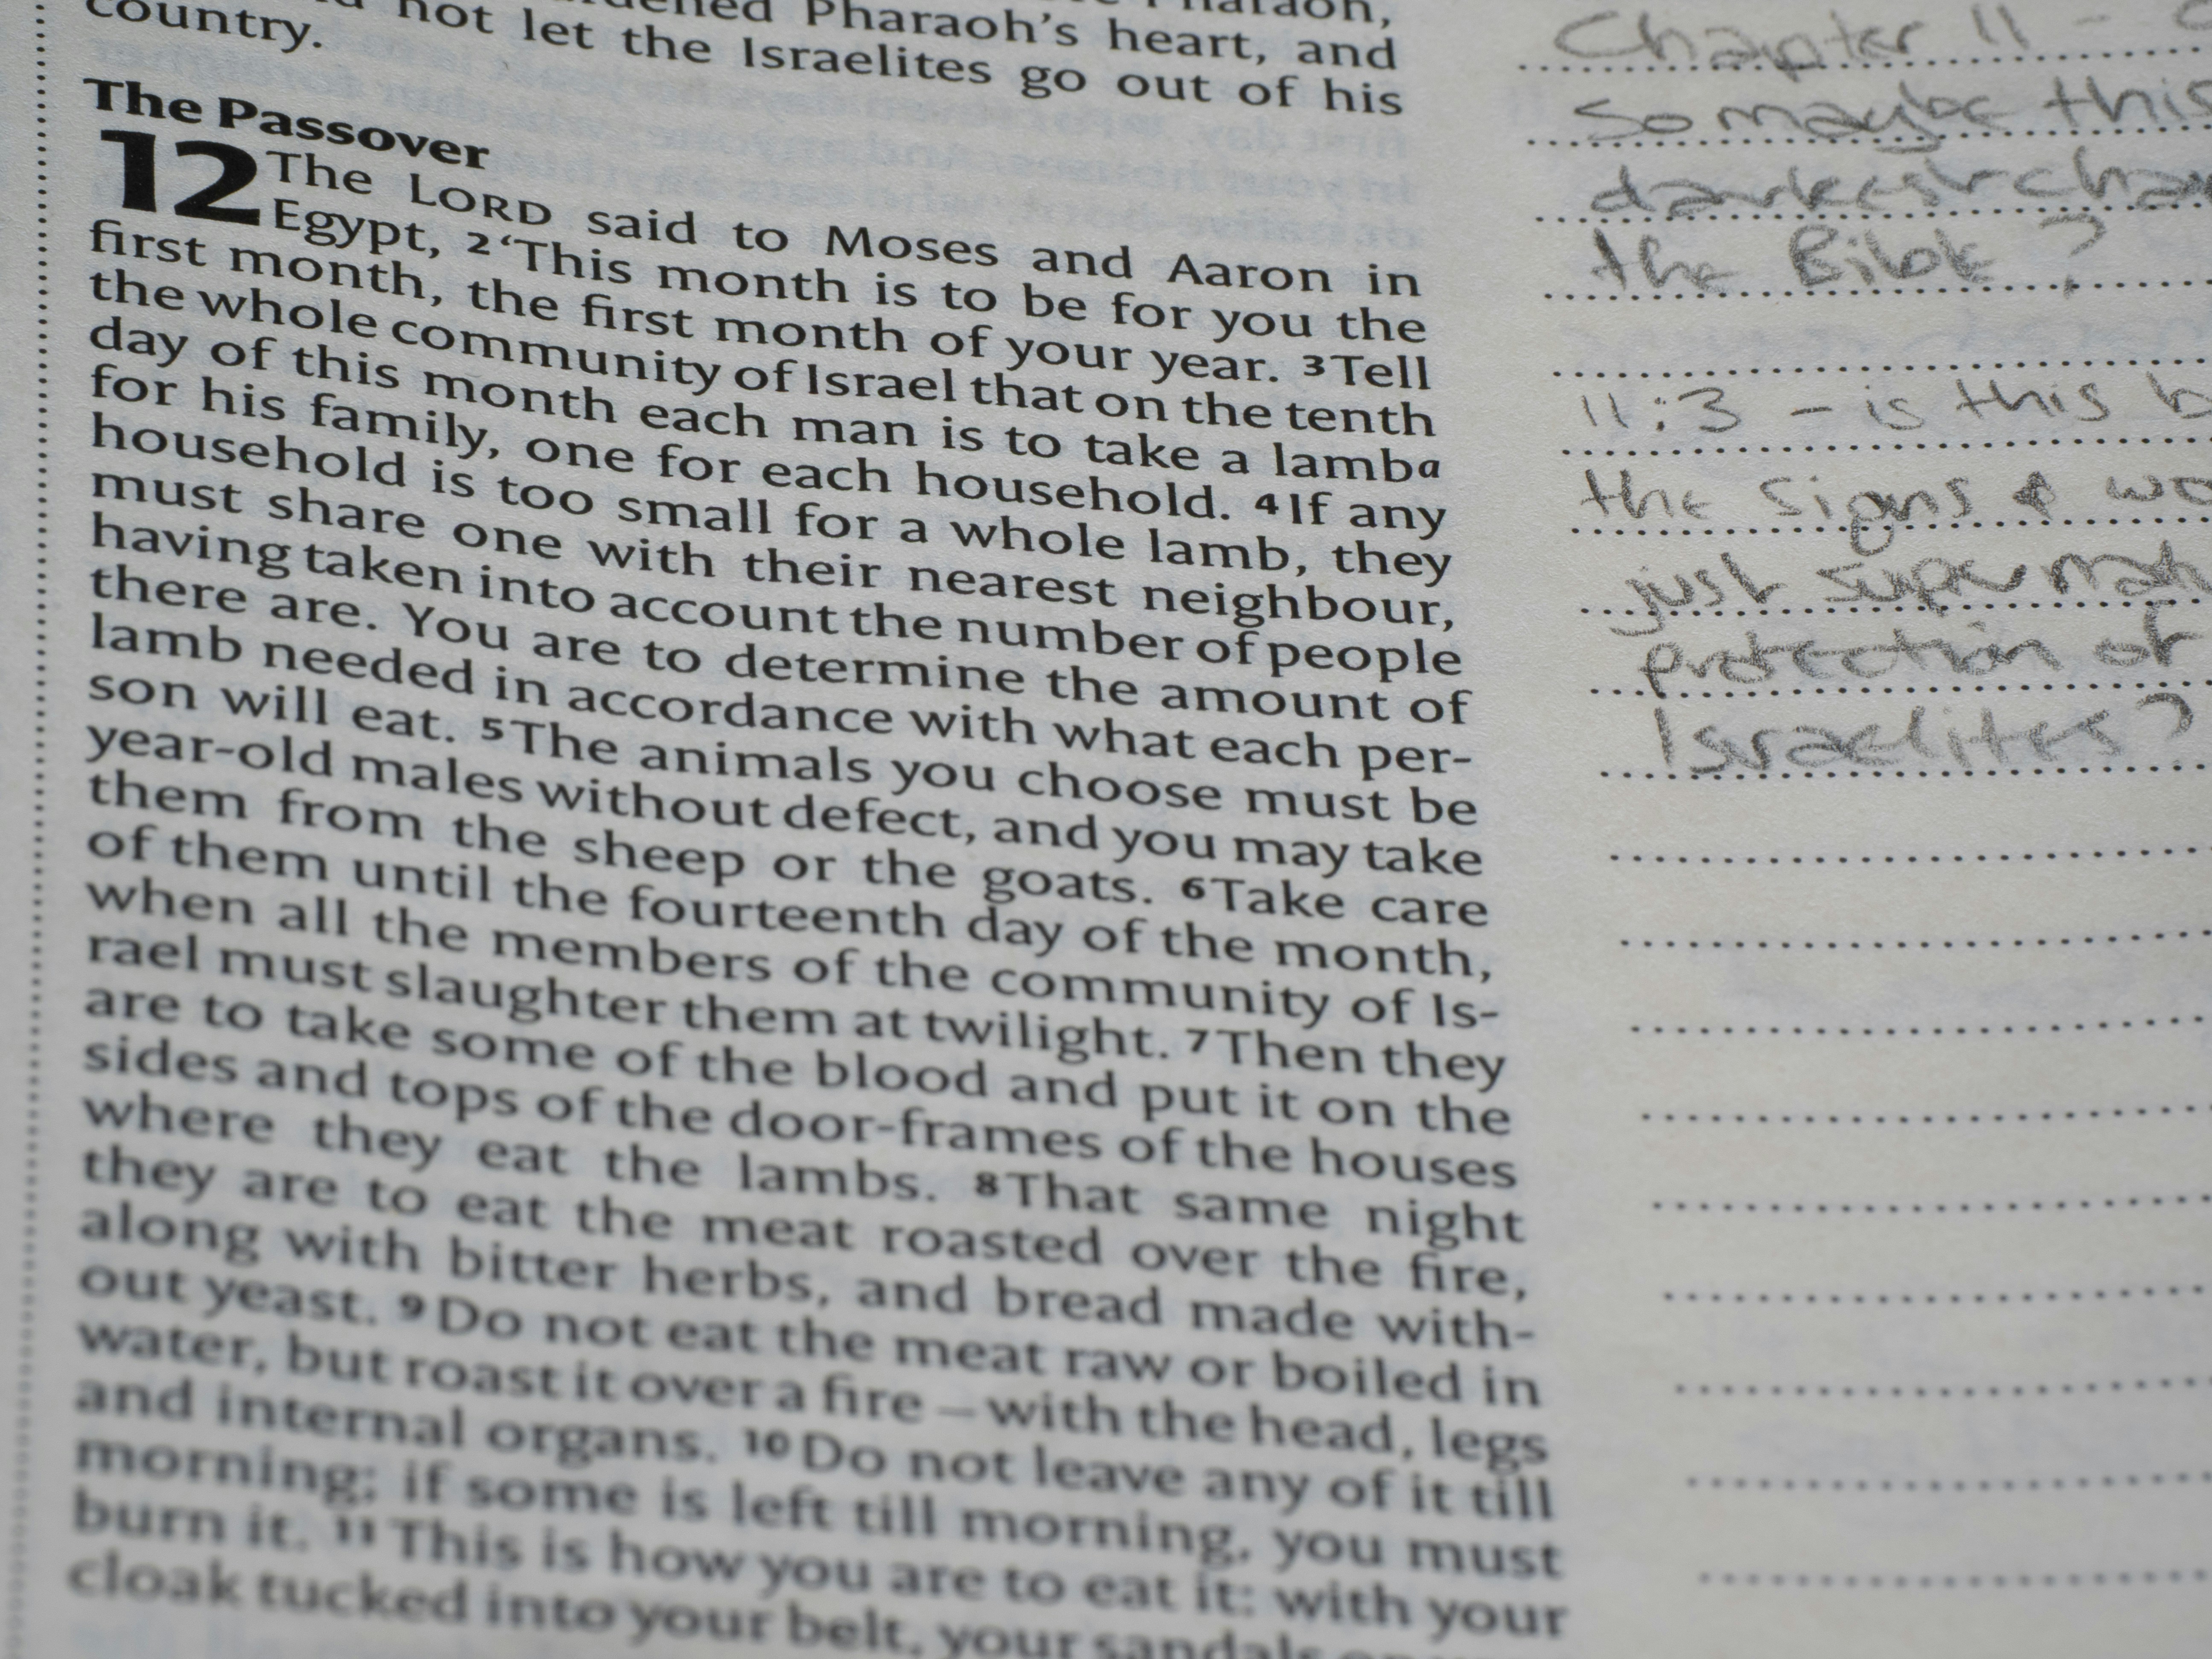 Pharaoh,
Pharaoh's heart, and
not let the Israelites go out of his
country.
The Passover
12 The LORD said to Moses and Aaron in
Egypt, 2‘This month is to be for you the
first month, the first month of your year. 3Tell
the whole community of Israel that on the tenth
day of this month each man is to take a lamba
for his family, one for each household. 4If any
household is too small for a whole lamb, they
must share one with their nearest neighbour,
having taken into account the number of people
there are. You are to determine the amount of
lamb needed in accordance with what each per-
son will eat. 5The animals you choose must be
year-old males without defect, and you may take
them from the sheep or the goats. 6Take care
of them until the fourteenth day of the month,
when all the members of the community of Is-
rael must slaughter them at twilight. 7Then they
are to take some of the blood and put it on the
sides and tops of the door-frames of the houses
where they eat the lambs. 8That same night
they are to eat the meat roasted over the fire,
along with bitter herbs, and bread made with-
out yeast. 9Do not eat the meat raw or boiled in
water, but roast it over a fire – with the head, legs
and internal organs. 10Do not leave any of it till
morning; if some is left till morning, you must
burn it. 11This is how you are to eat it: with your
cloak tucked into your belt, your sandals
Chapter 11 –
so maybe this
darkest
the Bible?
11:3 – is this
the signs &
just
protection of
Israelites?